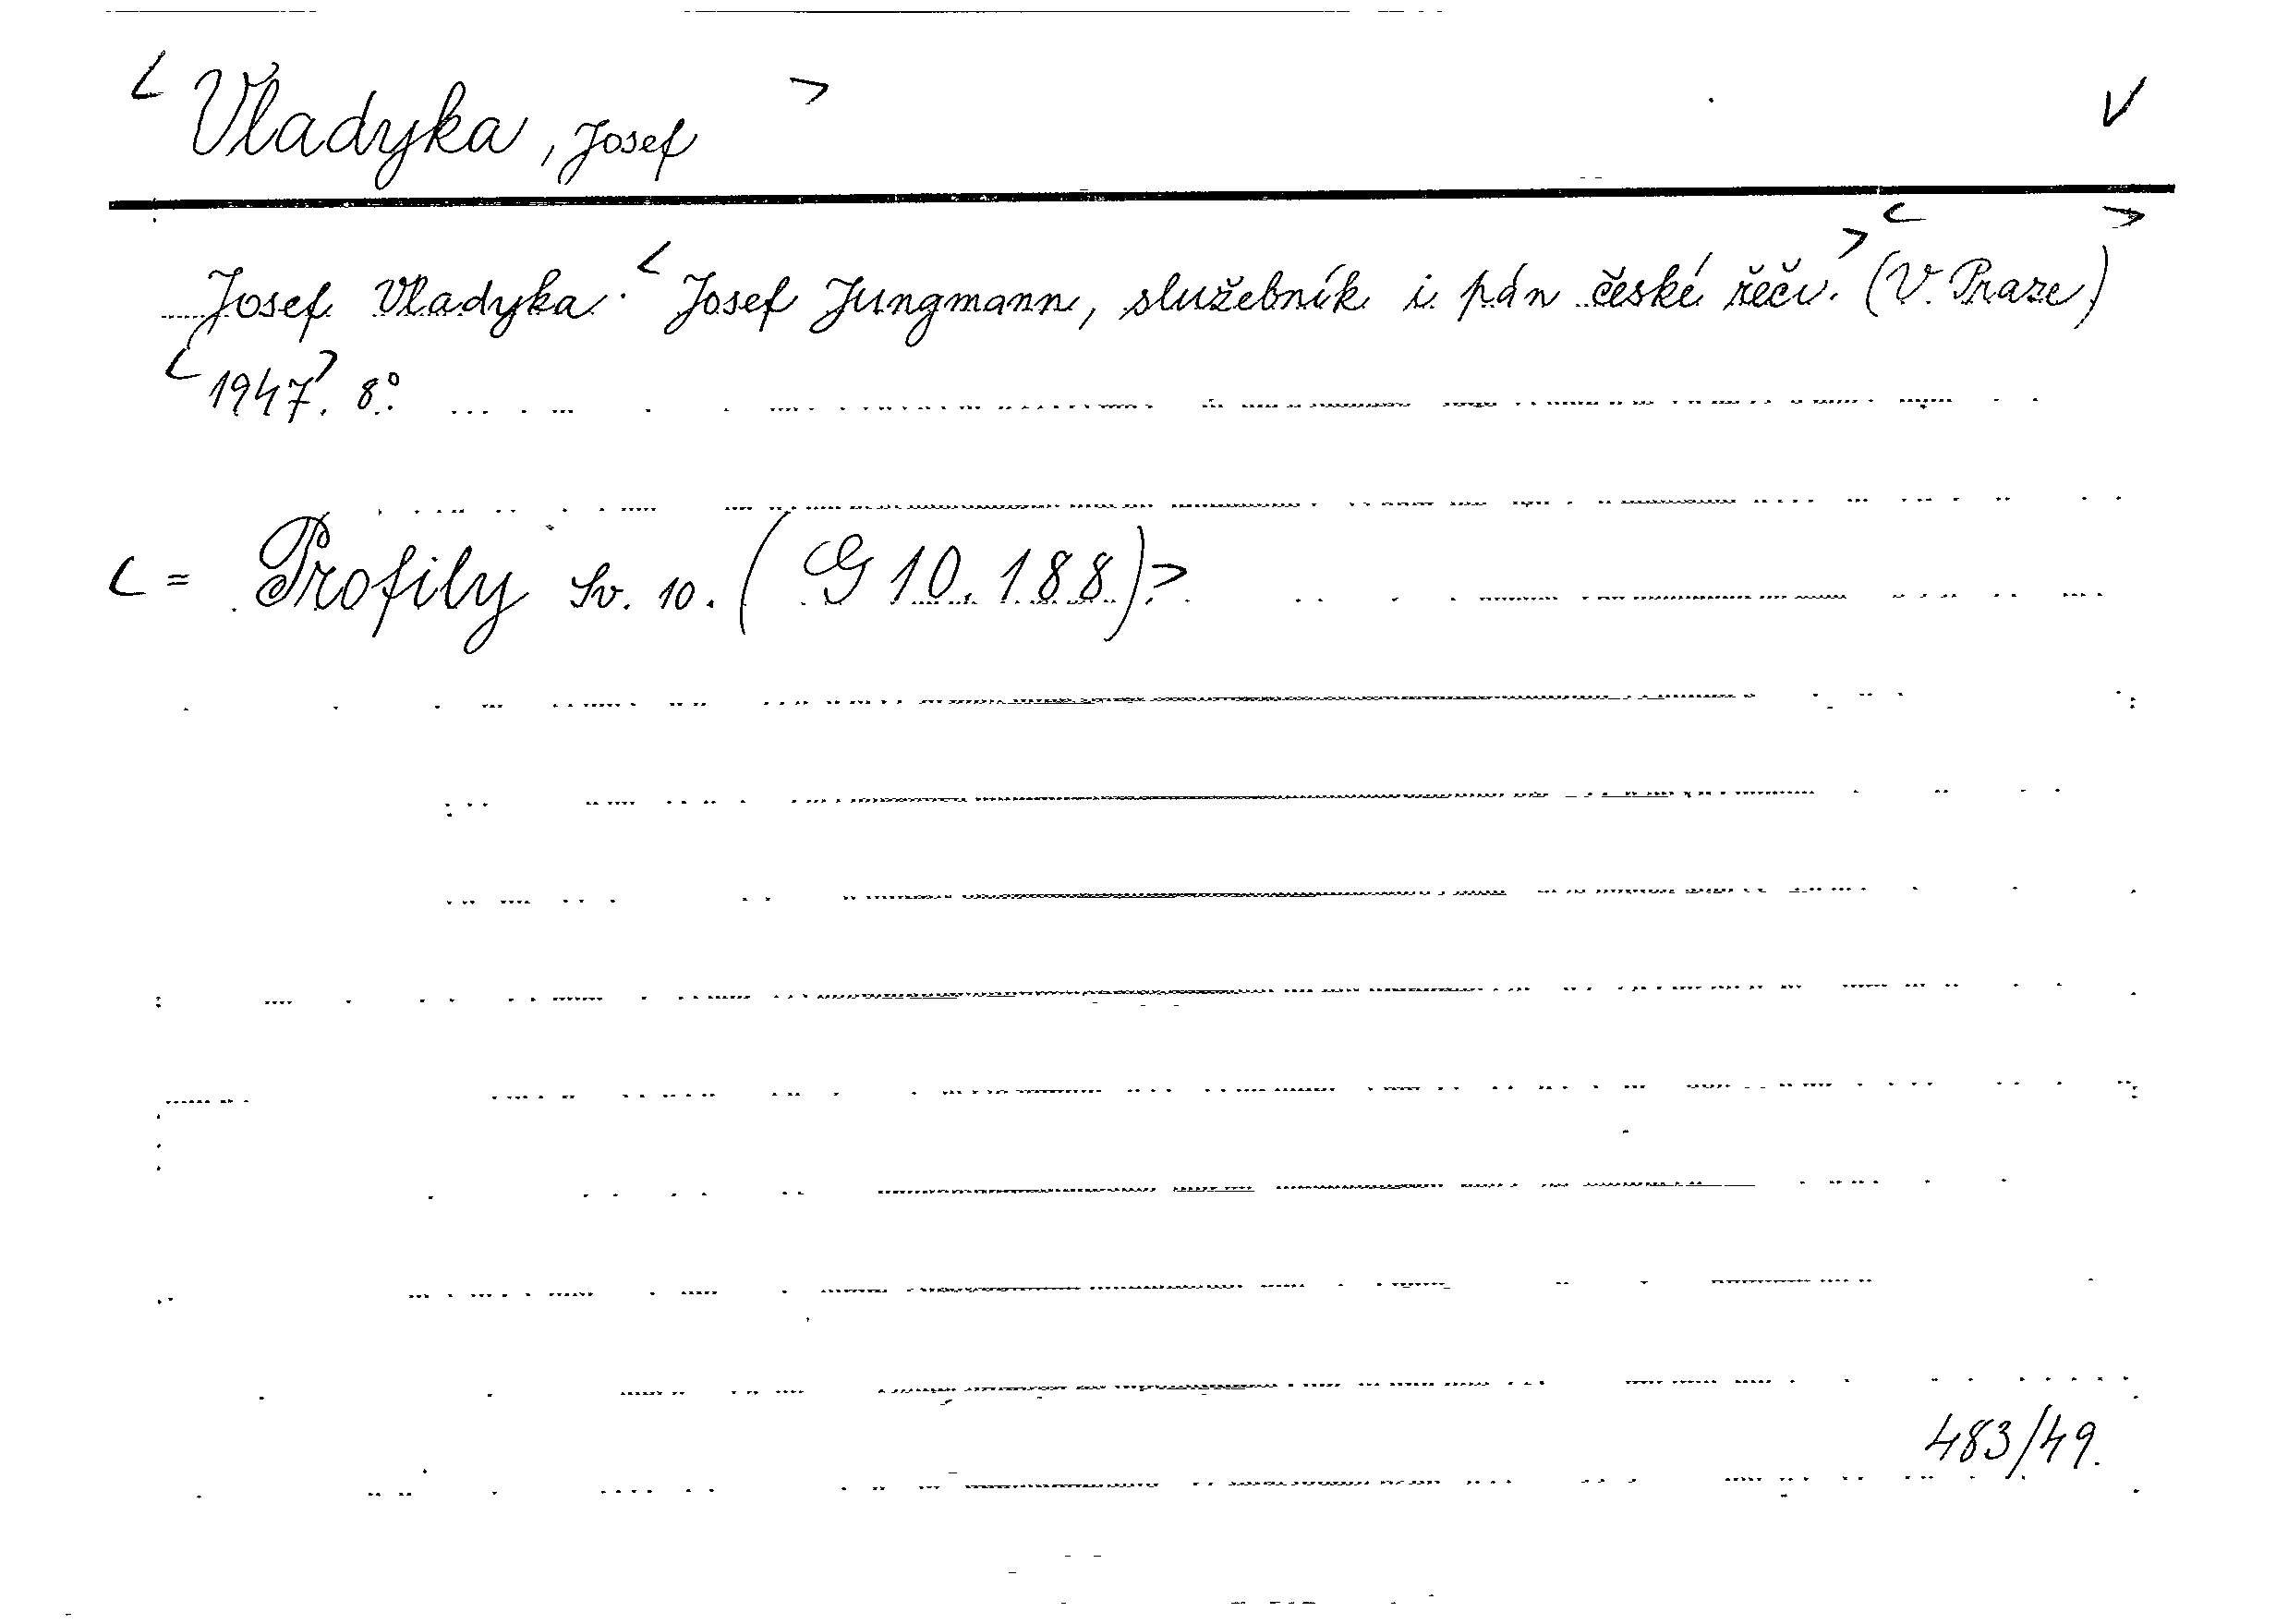 < Vladyka, Josef > V
Josef Vladyka. < Josef Jungmann, služebník i pán české řeči. > < (V Praze) >
< 1947 >. 8°.
< = Profily Sv. 10. (G 10.188) >
483/49.